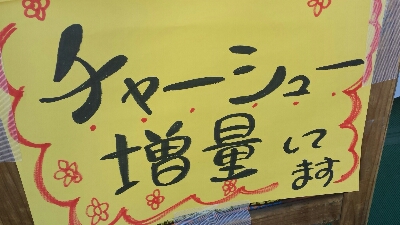 チャーシュー
増量してます